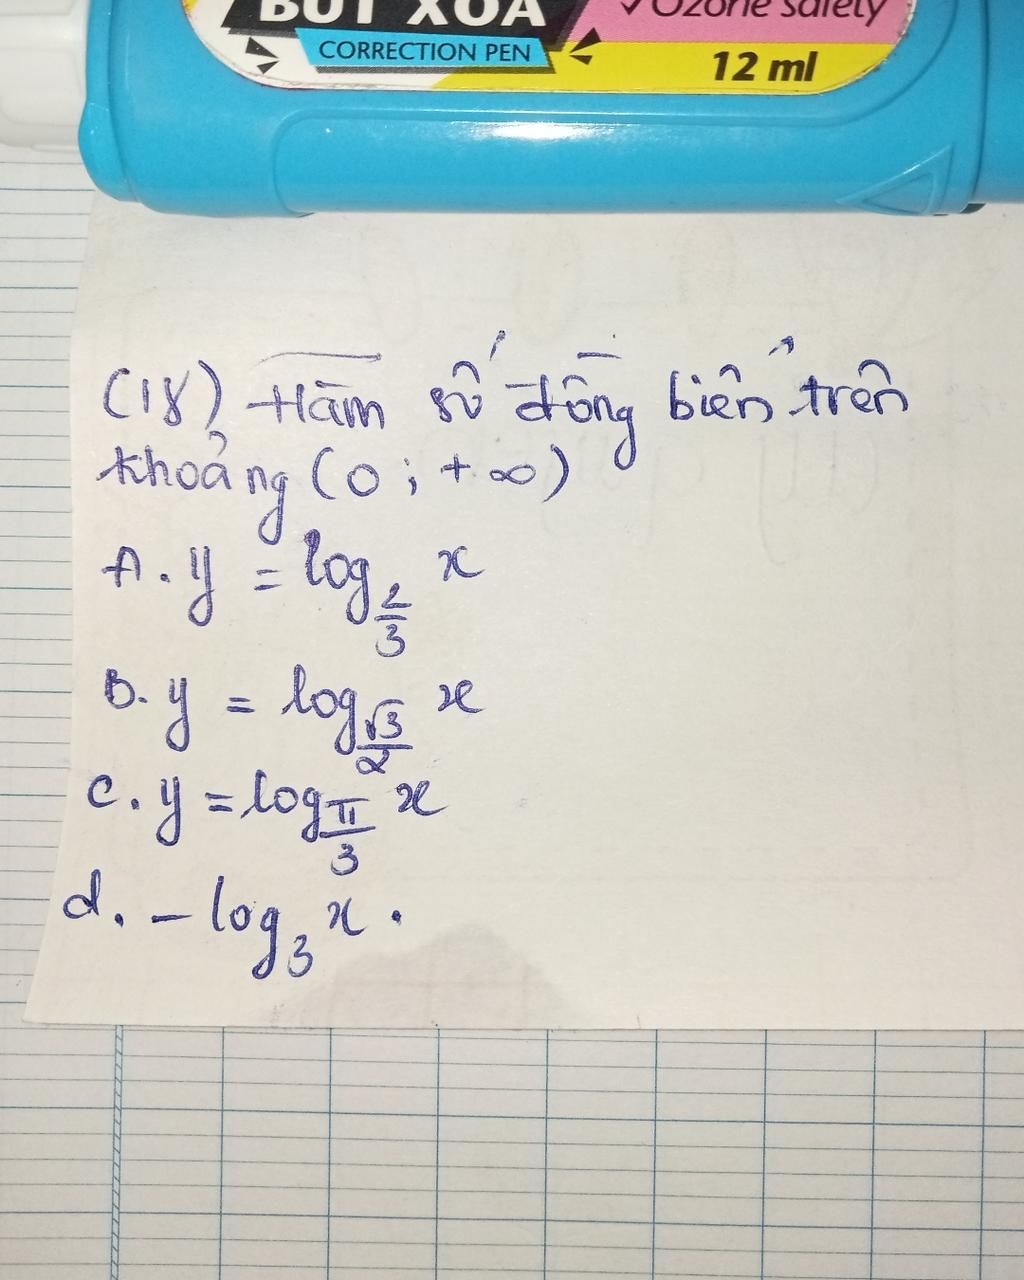 BÚT XÓA
✓Ozone safety
CORRECTION PEN
12 ml
(18) Hàm số đồng biến trên
khoảng (0 ; +∞)
A. y = log_{2/3} x
B. y = log_{√3/2} x
C. y = log_{π/3} x
d. - log_3 x .